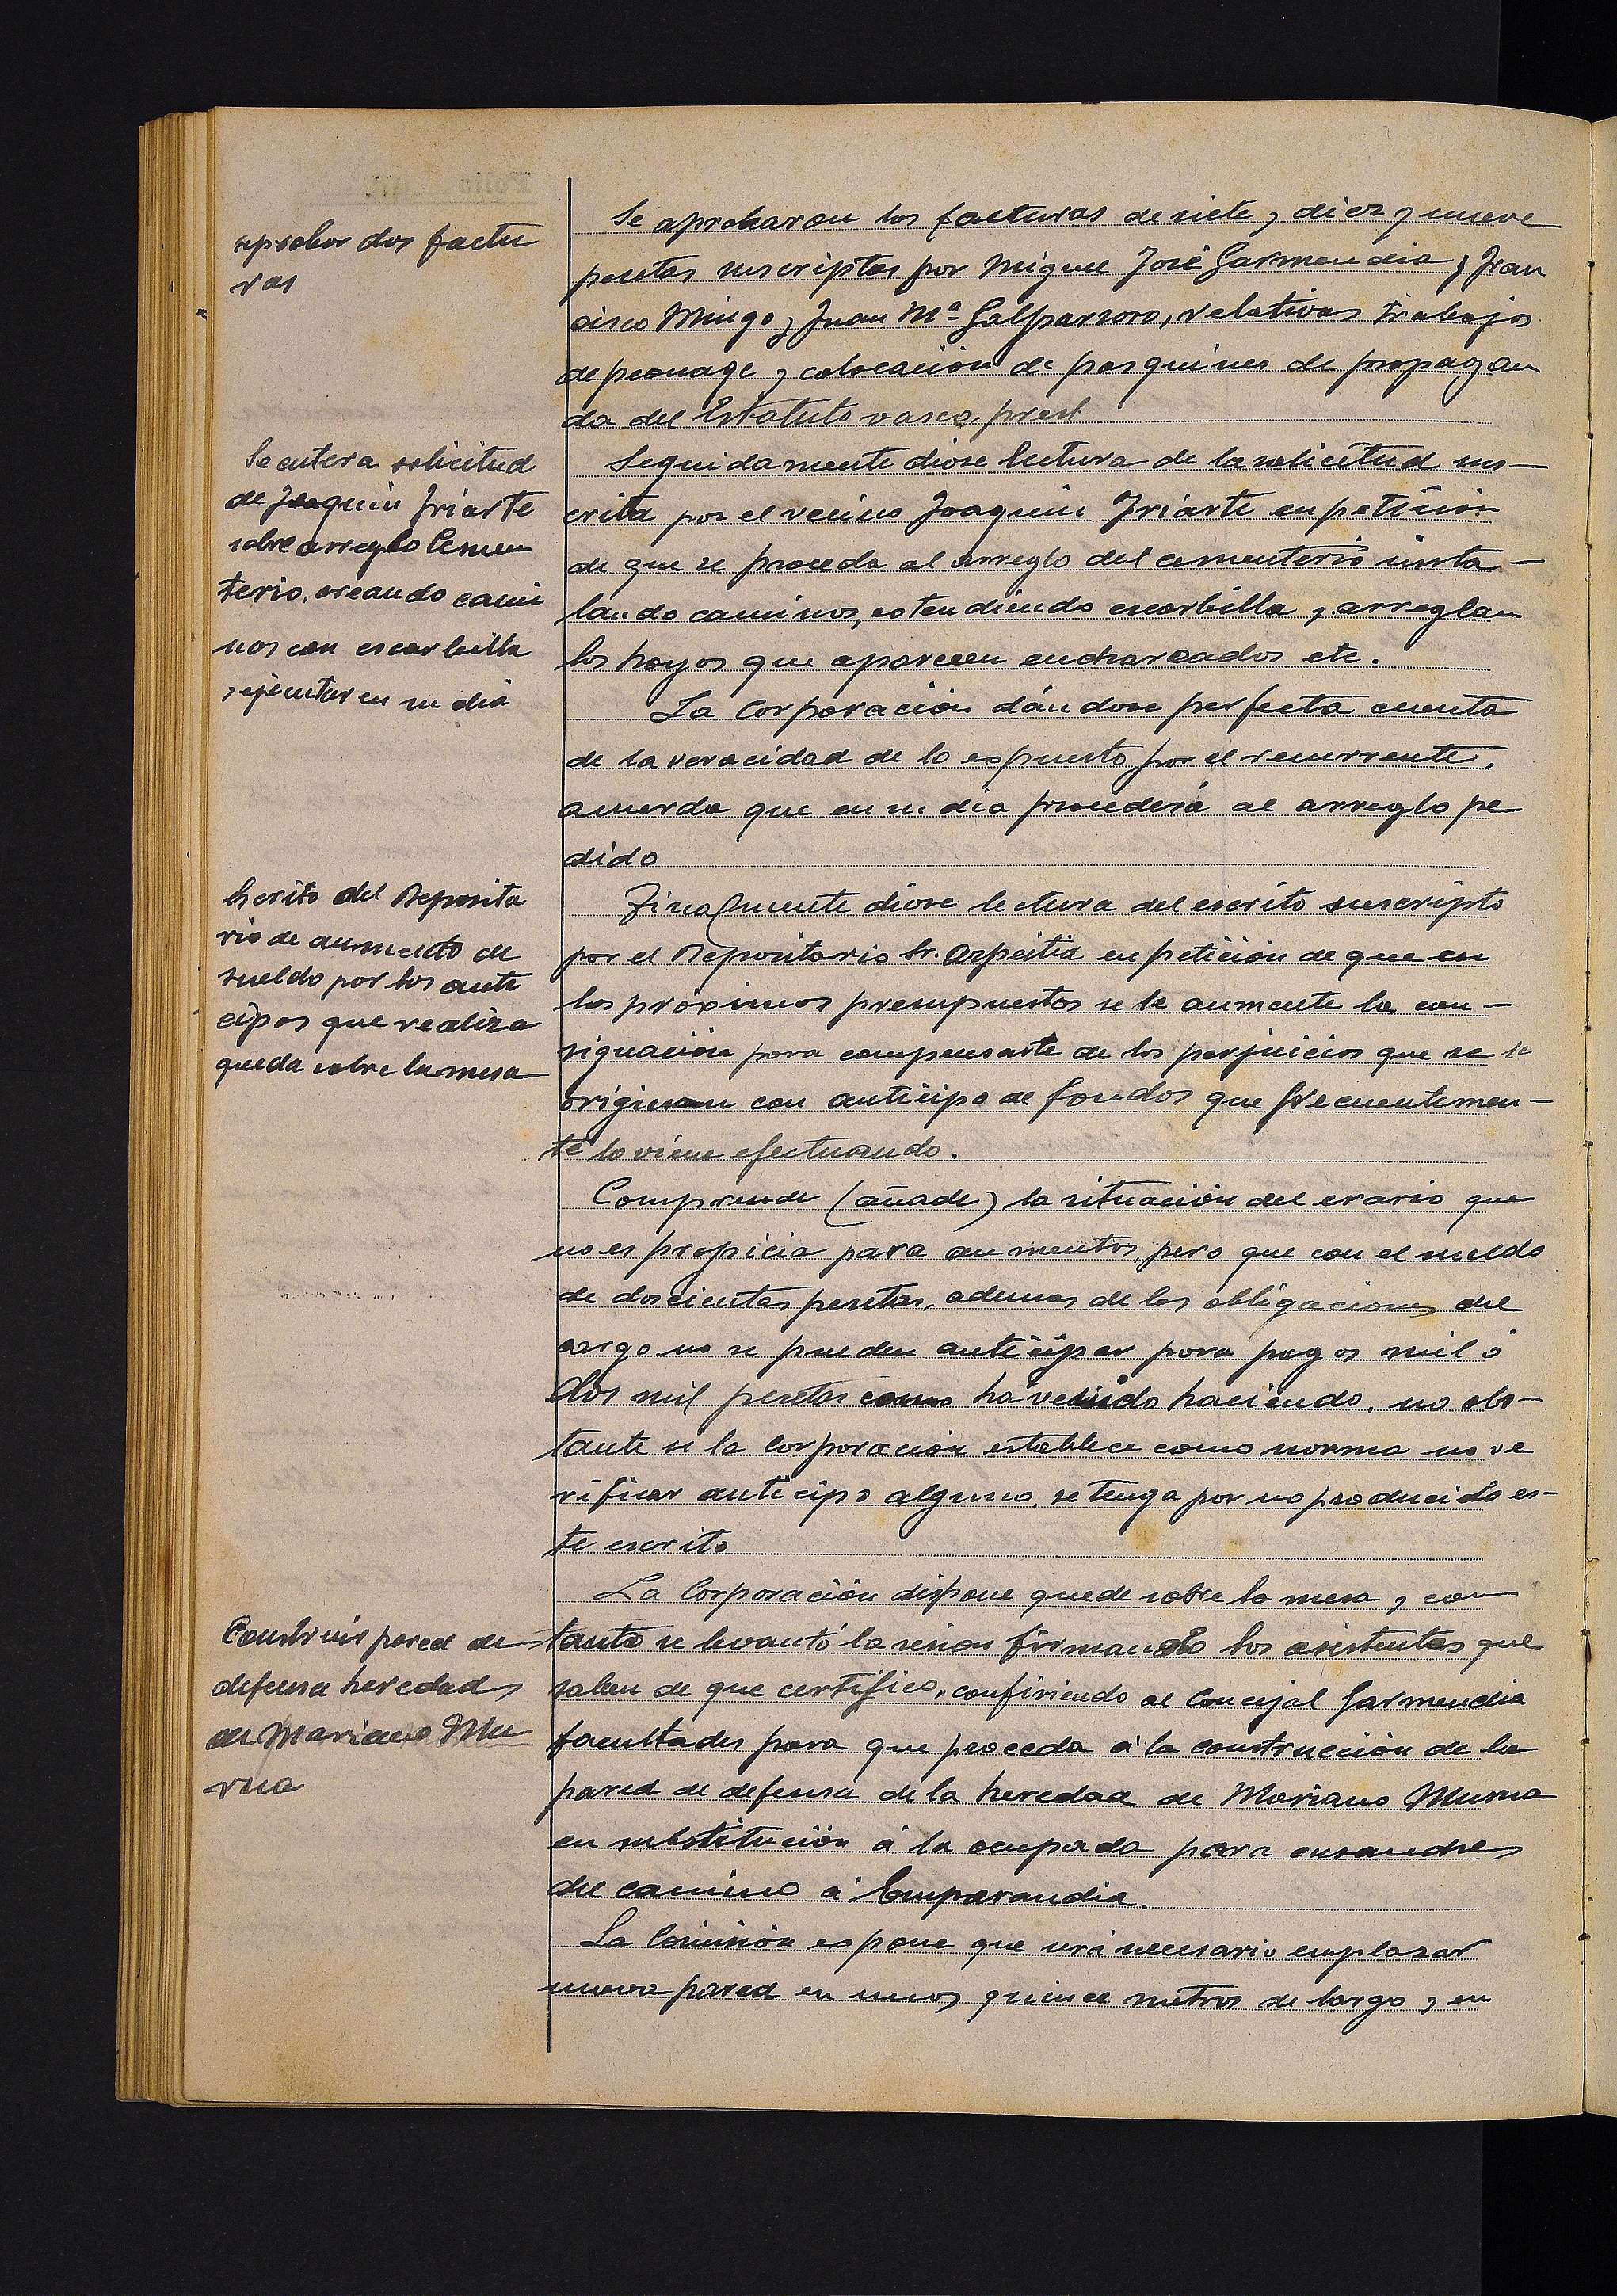 aprobar dos factu
ras
Se aprobaron los facturas de siete y diez y nueve
pesetas suscriptas por Miguel José Garmendia y Fran
cisco Mingo y Juan Mª Galparsoro, relativas trabajos
de peonage y colocación de pasquines de propagan
da del Estatuto vasco, prest
Se entera solicitud
de Joaquin Iriarte
sobre arreglo Cemen
terio, creando cami
nos con escarbilla
y ejecutar en su dia
Seguidamente dióse lectura de la solicitud sus-
crita por el vecino Joaquin Iriarte en petición
de que se proceda al arreglo del cementerio insta-
lando caminos, estendiendo escarbilla y arreglan
los hoyos que aparecen encharcados etc.
La Corporación dándose perfecta cuenta
de la veracidad de lo espuesto por el recurrente,
acuerda que en su dia procederá al arreglo pe
dido
Escrito del Deposita
rio de aumento de
sueldo por los anti
cipos que realiza
queda sobre la mesa
Finalmente dióse lectura del escrito suscripto
por el Depositario Sr. Azpeitia en petición de que en
los próximos presupuestos se le aumente la con-
signación para compensarle de los perjuicios que se le
originan con anticipo de fondos que frecuentemen-
te lo viene efectuando.
Comprende (añade) la situación del erario que
no es propicia para aumentos, pero que con el sueldo
de doscientas pesetas, ademas de las obligaciones del
cargo no se pueden anticipar para pagos mil ó
dos mil pesetas como ha venido haciendo, no obs-
tante si la Corporación establece como norma no ve
rificar anticipo alguno, se tenga por no producido es-
te escrito
La Corporación dispone quede sobre la mesa y con
Construir pared de
defensa heredad
de Mariano Mu
rua
tanto se levantó la sesion firmando los asistentes que
saben de que certifico, confiriendo al Concejal Garmendia
facultades para que proceda á la construcción de la
pared de defensa de la heredad de Mariano Murua
en substitución á la ocupada para ensanche
del camino á Emparandia.
La Comisión espone que será necesario emplazar
nueva pared en unos quince metros de largo y en